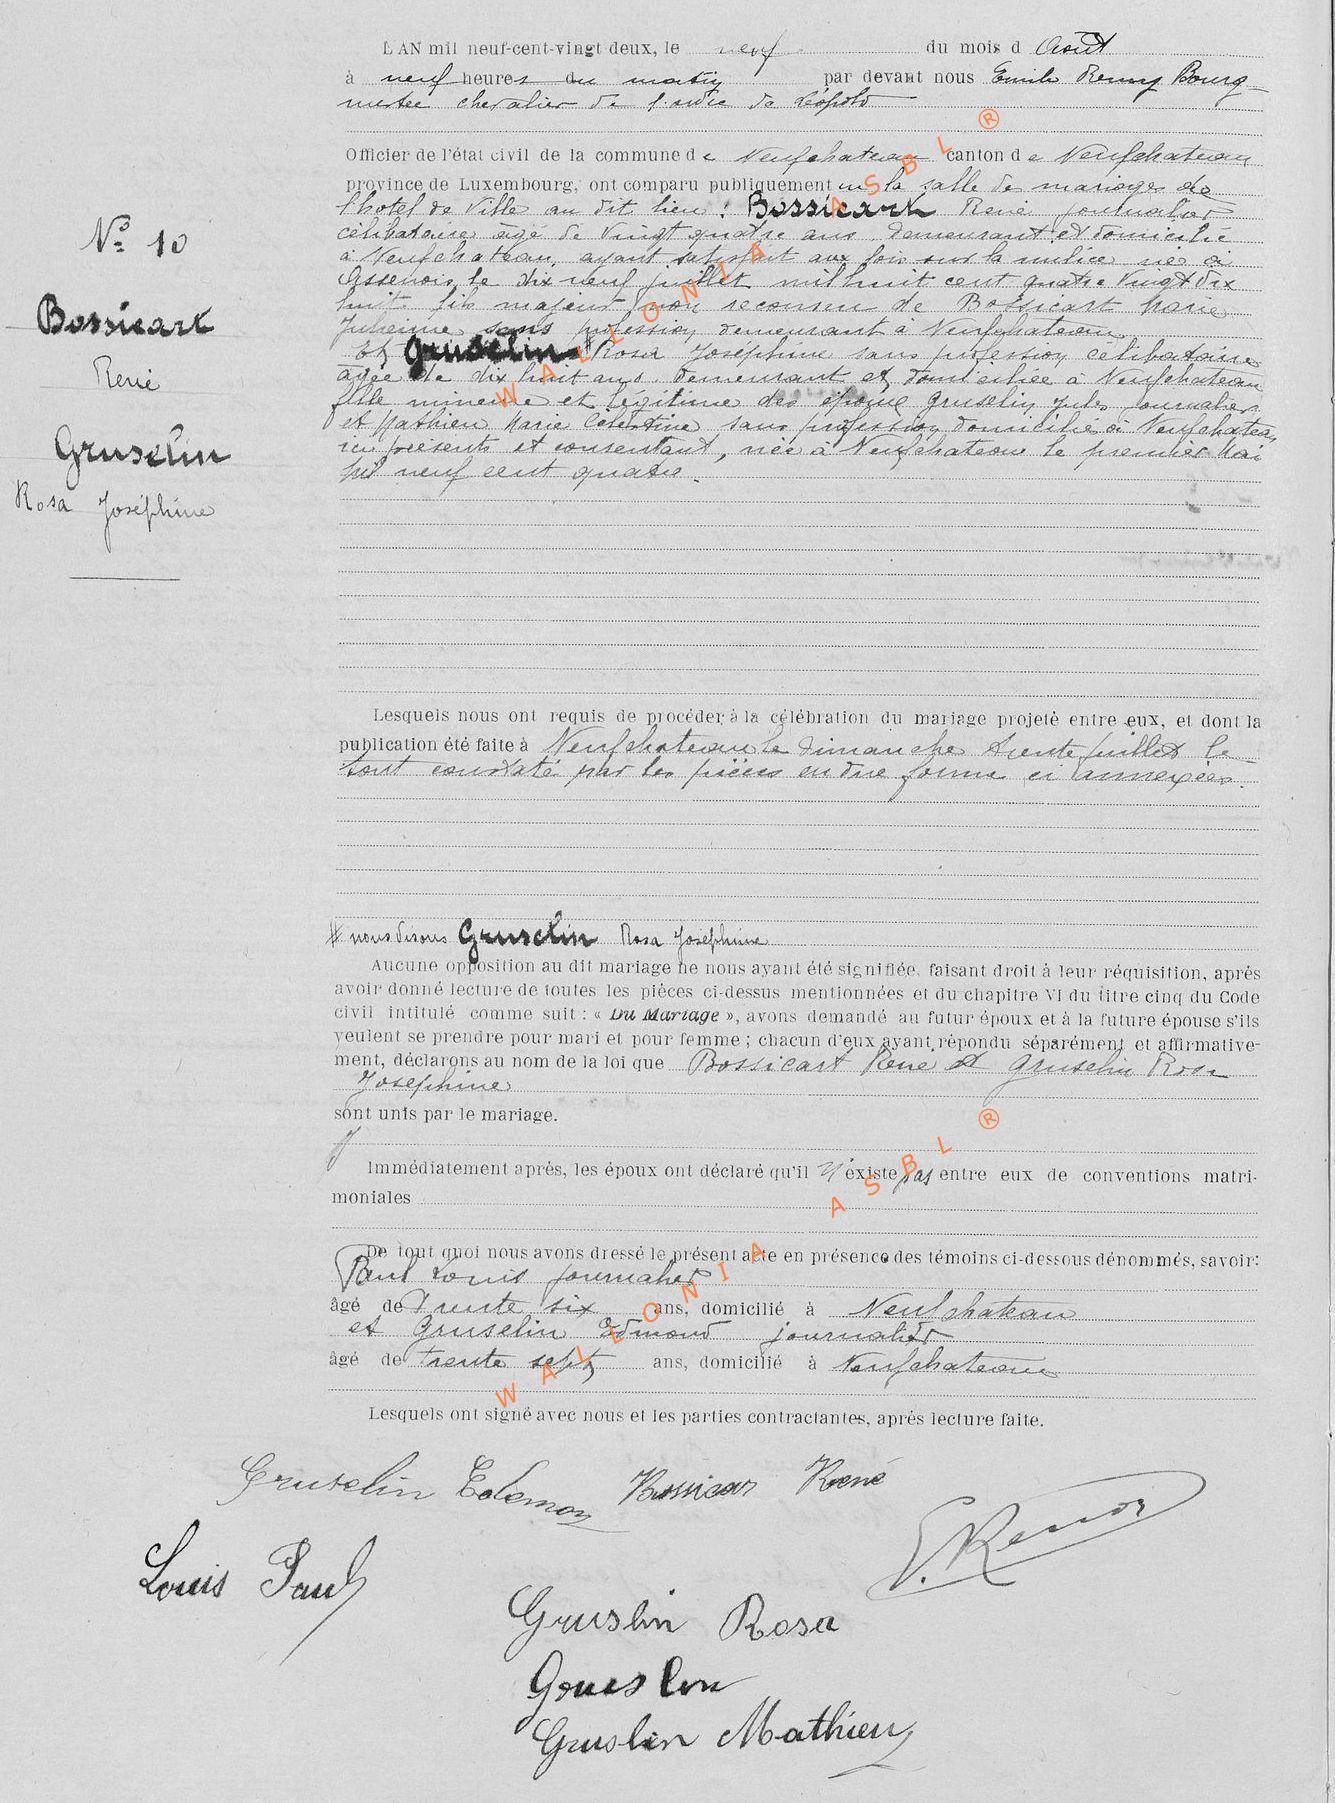 L'AN mil neuf-cent-vingt deux, le neuf du mois d Août
à neuf heures du matin par devant nous Emile Remy Bourg-
mestre chevalier de l'ordre de Léopold
Officier de l'état civil de la commune de Neufchateau canton de Neufchateau
province de Luxembourg, ont comparu publiquement en la salle des mariages de
l'hotel de Ville au dit lieu : Bossicart René journalier
célibataire âgé de vingt quatre ans demeurant et domicilié
à Neufchateau, ayant satisfait aux lois sur la milice né à
Assenois le dix neuf juillet mil huit cent quatre vingt dix
huit fils majeur non reconnu de Bossicart Marie
sans profession demeurant à Neufchateau
Et Gruselin # Rosa Joséphine sans profession célibataire
âgée de dix huit ans demeurant et domiciliée à Neufchateau
fille mineure et légitime des époux Gruselin Jules journalier
et Mathieu Marie Célestine sans profession domicilié à Neufchateau
ici présents et consentant, née à Neufchateau le premier Mai
mil neuf cent quatre.
Nº 10
Bossicart
René
Gruselin
Rosa Joséphine
Lesquels nous ont requis de procéder à la célébration du mariage projeté entre eux, et dont la
publication été faite à Neufchateau le dimanche trente juillet le
tout constaté par les pièces en due forme ci annexées.
# nous disons Gruselin Rosa Joséphine
Aucune opposition au dit mariage ne nous ayant été signifiée, faisant droit à leur réquisition, après
avoir donné lecture de toutes les pièces ci-dessus mentionnées et du chapitre VI du titre cinq du Code
civil intitulé comme suit : « Du Mariage », avons demandé au futur époux et à la future épouse s'ils
veulent se prendre pour mari et pour femme ; chacun d'eux ayant répondu séparément et affirmative-
ment, déclarons au nom de la loi que Bossicart René et Gruselin Rosa
Joséphine
sont unis par le mariage.
Immédiatement après, les époux ont déclaré qu'il n'existe pas entre eux de conventions matri-
moniales
De tout quoi nous avons dressé le présent acte en présence des témoins ci-dessous dénommés, savoir:
Paul Louis journalier
âgé de trente six ans, domicilié à Neufchateau
et Gruselin Edmond journalier
âgé de trente sept ans, domicilié à Neufchateau
Lesquels ont signé avec nous et les parties contractantes, après lecture faite.
Gruselin Edemon Bossicar René
E. Remy
Louis Paul
Gruslin Rosa
Grueslin
Gruslin Mathieu
WALLONIA ASBL ®
WALLONIA ASBL ®